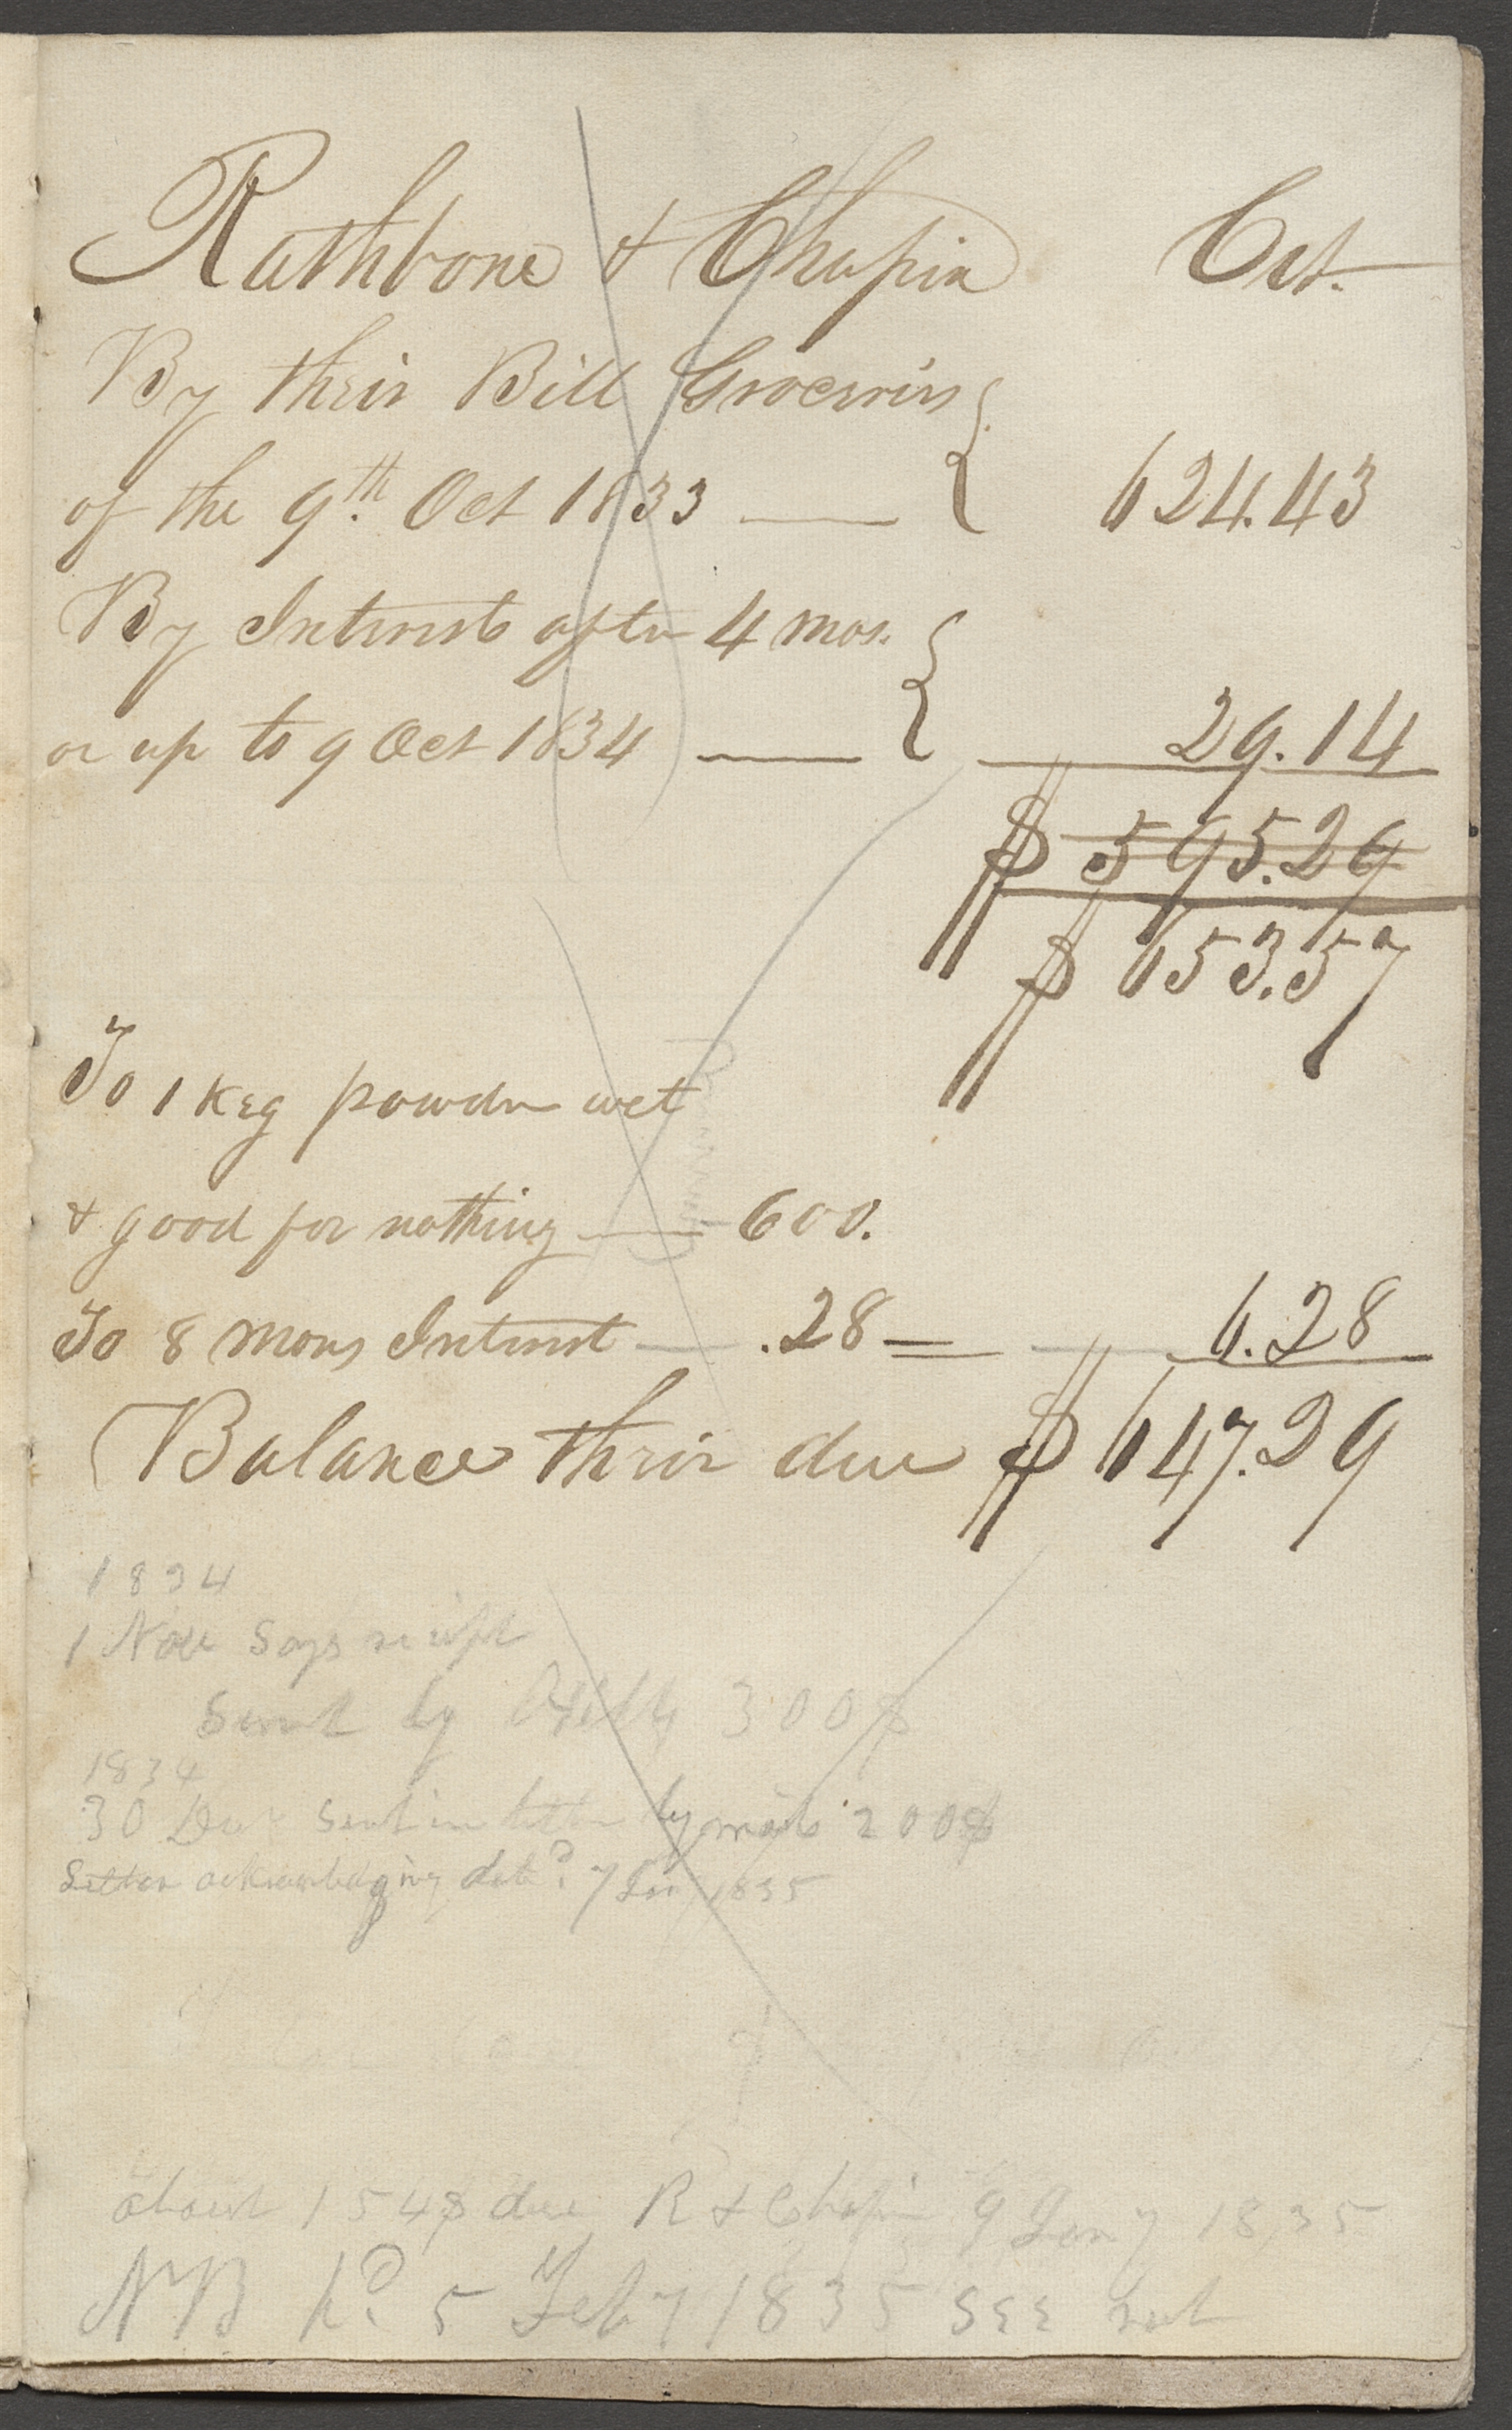 Rathbone & Chapin Cr.
By their Bill Groceries
of the 9th. Oct 1833 — 624.43
By Interest after 4 mos.
or up to 9 Oct 1834 — 29.14
$ 595.29
$ 653.57
To 1 Keg powder wet
& good for nothing — 600.
To 8 mons Interest — .28 = — 6.28
Balance their due $ 647.29
1834
1 Nov Says
Sent by 300$
1834
30 Dec Sent in letter by mail 200$
Letter acknowledging dated. 7 Jan 1835
about 154$ due R & Chapin 9 Jany 1835
NB pd. 5 Feby 1835 see